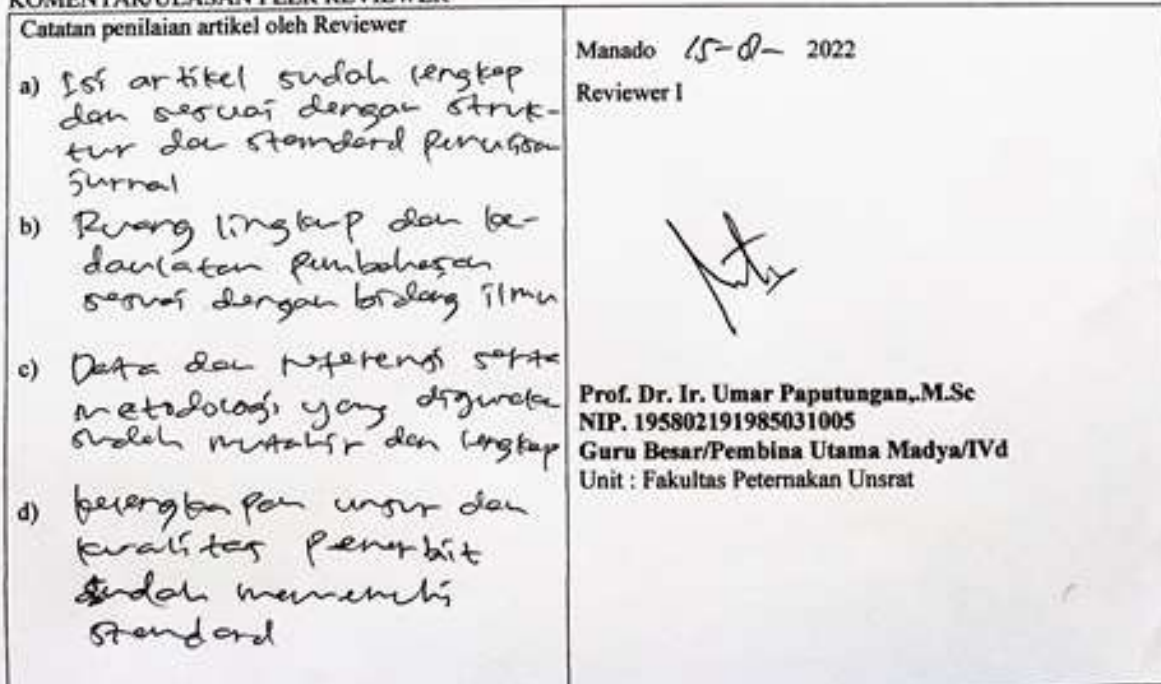 KOMENTAR/ULASAN PEER REVIEWER
Catatan penilaian artikel oleh Reviewer
a) Isi artikel sudah lengkap
dan sesuai dengan struk-
tur dan standard penulisan
jurnal
b) Ruang lingkup dan ke-
daulatan pembahasan
sesuai dengan bidang ilmu
c) Data dan referensi serta
metodologi yang digunaka
sudah mutahir dan lengkap
d) kelengkapan unsur dan
kualitas penerbit
sudah memenuhi
standard
Manado 15- 2022
Reviewer I
Prof. Dr. Ir. Umar Paputungan,.M.Sc
NIP. 195802191985031005
Guru Besar/Pembina Utama Madya/IVd
Unit : Fakultas Peternakan Unsrat